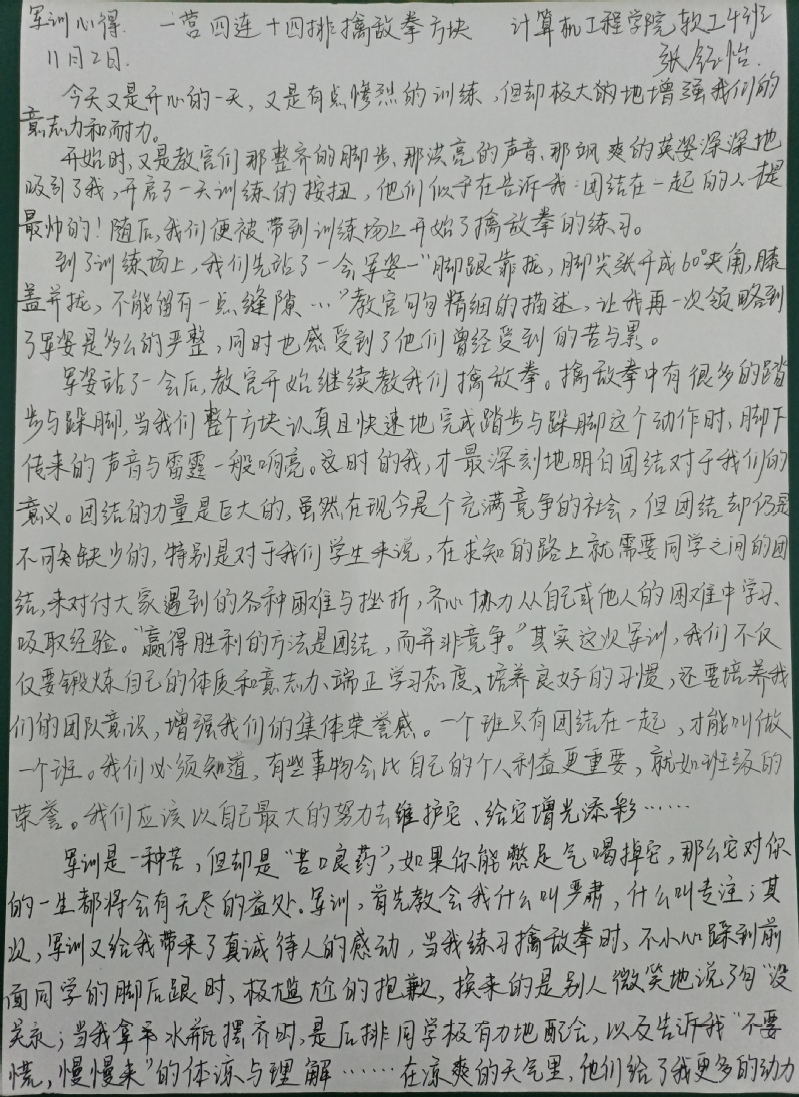 军训心得. 一营四连十四排擒敌拳方块 计算机工程学院软工4班
11月2日. 张舒怡.
今天又是开心的一天，又是有点惨烈的训练，但却极大的地增强我们的
意志力和耐力。
开始时，又是教官们那整齐的脚步、那洪亮的声音、那飒爽的英姿深深地
吸引了我，开启了一天训练的按扭，他们似乎在告诉我：团结在一起的人是
最帅的！随后，我们便被带到训练场上开始了擒敌拳的练习。
到了训练场上，我们先站了一会军姿一"脚跟靠拢，脚尖张开成60°夹角，膝
盖并拢，不能留有一点缝隙…"教官句句精细的描述，让我再一次领略到
了军姿是多么的严整，同时也感受到了他们曾经受到的苦与累。
军姿站了一会后，教官开始继续教我们擒敌拳。擒敌拳中有很多的踏
步与跺脚，当我们整个方块认真且快速地完成踏步与跺脚这个动作时，脚下
传来的声音与雷霆一般响亮。这时的我，才最深刻地明白团结对于我们的
意义。团结的力量是巨大的，虽然在现今是个充满竞争的社会，但团结却仍是
不可缺少的，特别是对于我们学生来说，在求知的路上就需要同学之间的团
结，来对付大家遇到的各种困难与挫折，齐心协力从自己或他人的困难中学习、
吸取经验。"赢得胜利的方法是团结，而并非竞争。"其实这次军训，我们不仅
仅要锻炼自己的体质和意志力、端正学习态度、培养良好的习惯，还要培养我
们的团队意识，增强我们的集体荣誉感。一个班只有团结在一起，才能叫做
一个班。我们必须知道，有些事物会比自己的个人利益更重要，就如班级的
荣誉。我们应该以自己最大的努力去维护它、给它增光添彩……
军训是一种苦，但却是"苦口良药"，如果你能憋足气喝掉它，那么它对你
的一生都将会有无尽的益处。军训，首先教会我什么叫严肃，什么叫专注；其
次，军训又给我带来了真诚待人的感动，当我练习擒敌拳时，不小心踩到前
面同学的脚后跟时，极尴尬的抱歉，换来的是别人微笑地说了句"没
关系；当我拿平水瓶摆齐时，是后排同学极有力地配合，以及告诉我"不要
慌，慢慢来"的体谅与理解……在凉爽的天气里，他们给了我更多的动力